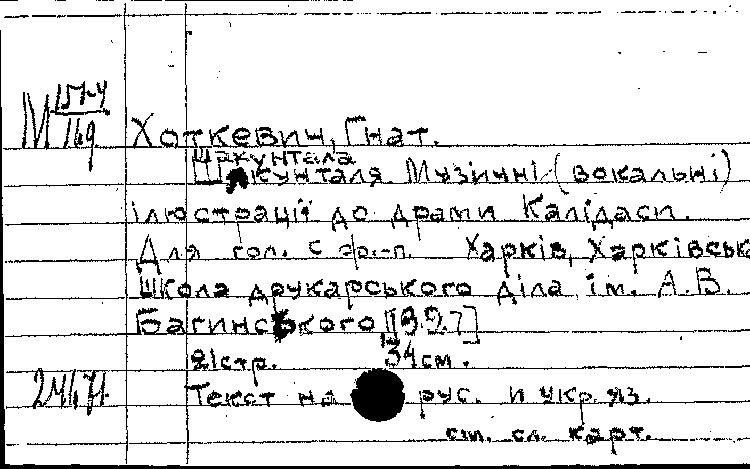 М 151-4
169
Хоткевич, Гнат.
Шакунтала
Шакунталя Музичні (вокальні)
ілюстрації до драми Калідаси.
Для гол. с фр.-п. Харків, Харківська
Школа друкарського діла ім. А.В.
Багинського [192.7]
21стр. 34см.
Текст на рус. и укр. яз.
см. сл. карт.